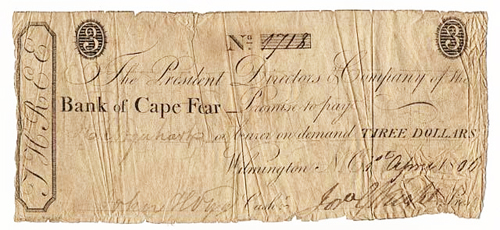 3 No 1718 3
THREE
The President Directors & Company of the
Bank of Cape Fear Promise to pay
or bearer on demand THREE DOLLARS
Wilmington N.C. 1st April
Cashr. Presdt.